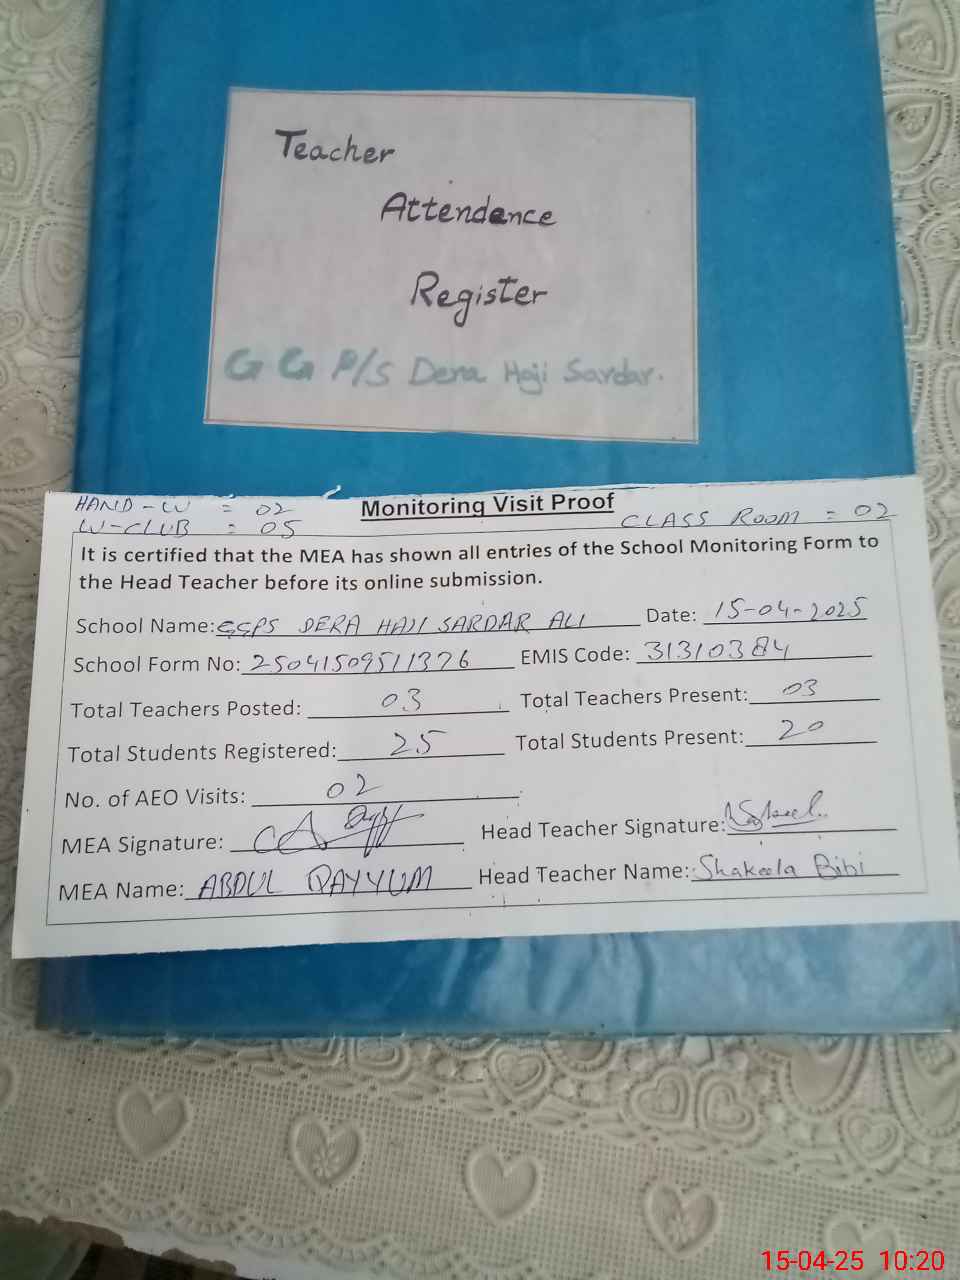 Teacher
Attendence
Register
G G P/S Dera Haji Sardar.
HAND-W = 02
W-CLUB = 05
Monitoring Visit Proof
CLASS ROOM = 02
It is certified that the MEA has shown all entries of the School Monitoring Form to
the Head Teacher before its online submission.
School Name: GGPS DERA HAJI SARDAR ALI Date: 15-04-2025
School Form No: 25041509511376 EMIS Code: 31310384
Total Teachers Posted: 03 Total Teachers Present: 03
Total Students Registered: 25 Total Students Present: 20
No. of AEO Visits: 02
MEA Signature: Head Teacher Signature:
MEA Name: ABDUL QAYYUM Head Teacher Name: Shakeela Bibi
15-04-25 10:20